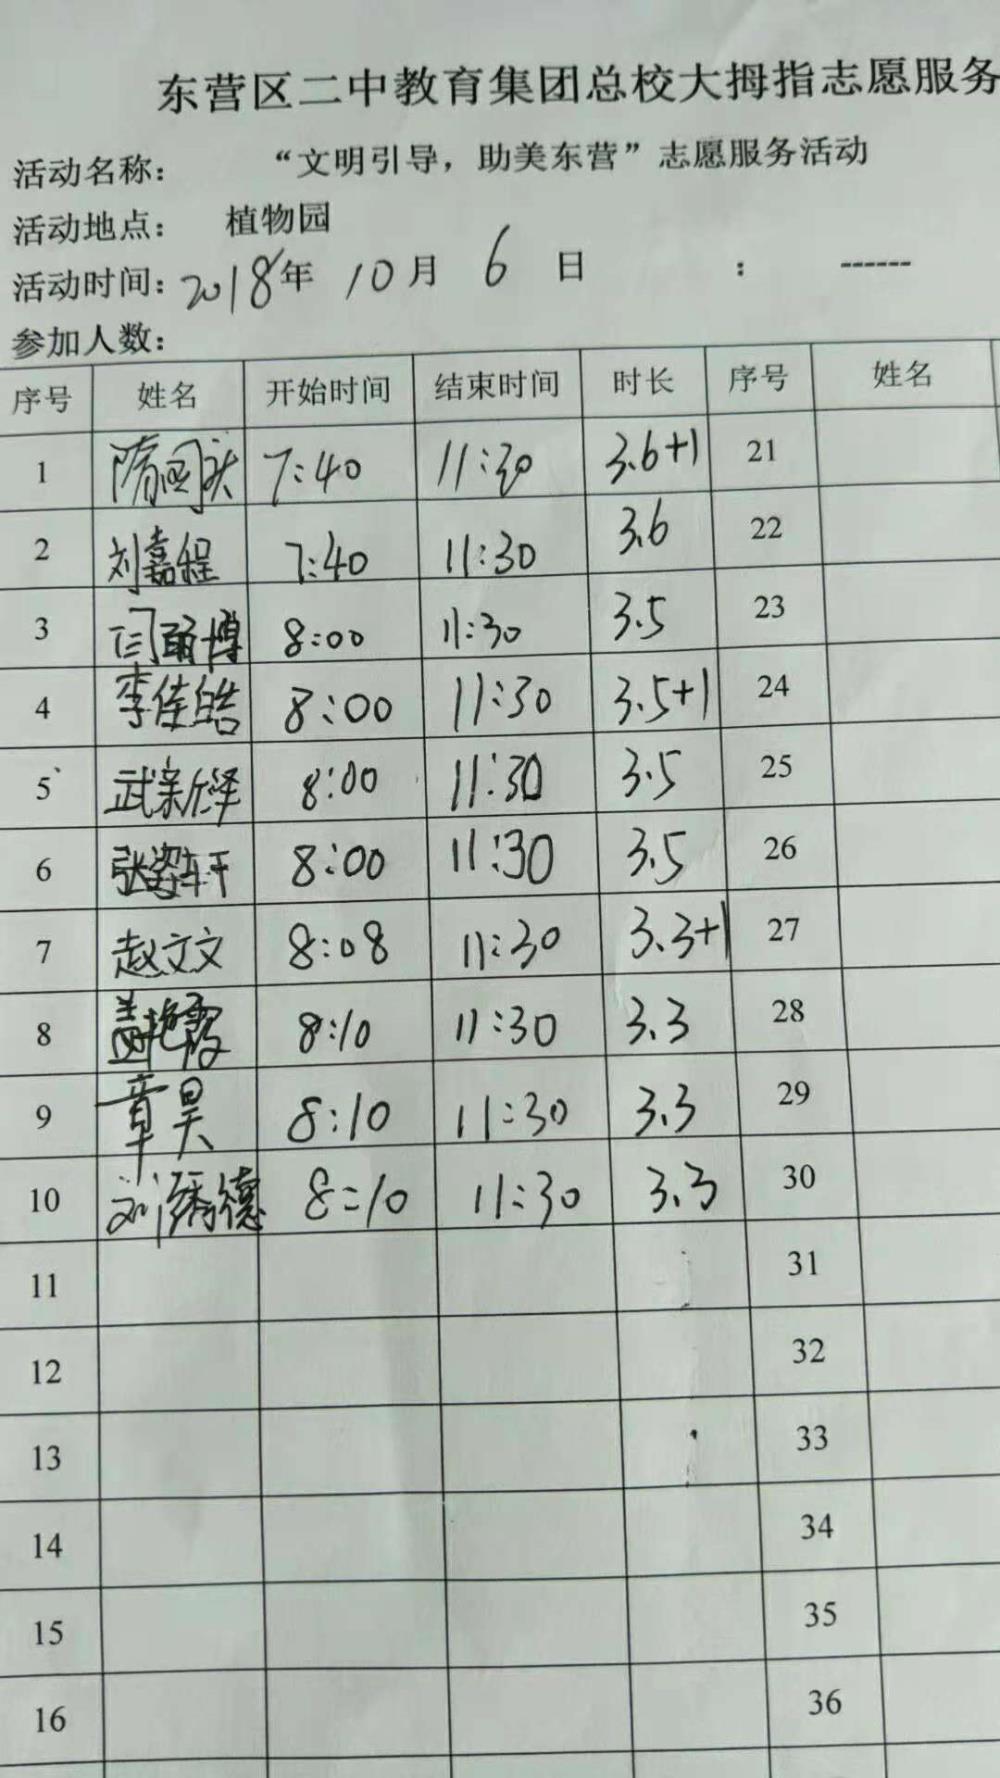 东营区二中教育集团总校大拇指志愿服务
活动名称： “文明引导，助美东营”志愿服务活动
活动地点： 植物园
活动时间：2018年 10 月 6 日 : ------
参加人数：
序号 姓名 开始时间 结束时间 时长 序号 姓名
1 7:40 11:30 3.6+1 21
2 刘嘉程 7:40 11:30 3.6 22
3 闫博 8:00 11:30 3.5 23
4 李佳皓 8:00 11:30 3.5+1 24
5 武新泽 8:00 11:30 3.5 25
6 张姿轩 8:00 11:30 3.5 26
7 赵文文 8:08 11:30 3.3+1 27
8 盖艳霞 8:10 11:30 3.3 28
9 章昊 8:10 11:30 3.3 29
10 刘德 8:10 11:30 3.3 30
11 31
12 32
13 33
14 34
15 35
16 36